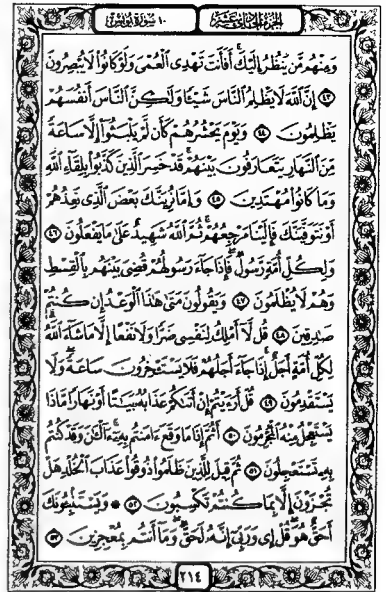 الجزء الحادي عشر
١٠ سورة يونس
وَمِنْهُم مَّن يَنظُرُ إِلَيْكَ أَفَأَنتَ تَهْدِى ٱلْعُمْىَ وَلَوْ كَانُوا۟ لَا يُبْصِرُونَ
٤٣ إِنَّ ٱللَّهَ لَا يَظْلِمُ ٱلنَّاسَ شَيْـًٔا وَلَـٰكِنَّ ٱلنَّاسَ أَنفُسَهُمْ
يَظْلِمُونَ ٤٤ وَيَوْمَ يَحْشُرُهُمْ كَأَن لَّمْ يَلْبَثُوٓا۟ إِلَّا سَاعَةً
مِّنَ ٱلنَّهَارِ يَتَعَارَفُونَ بَيْنَهُمْ ۚ قَدْ خَسِرَ ٱلَّذِينَ كَذَّبُوا۟ بِلِقَآءِ ٱللَّهِ
وَمَا كَانُوا۟ مُهْتَدِينَ ٤٥ وَإِمَّا نُرِيَنَّكَ بَعْضَ ٱلَّذِى نَعِدُهُمْ
أَوْ نَتَوَفَّيَنَّكَ فَإِلَيْنَا مَرْجِعُهُمْ ثُمَّ ٱللَّهُ شَهِيدٌ عَلَىٰ مَا يَفْعَلُونَ ٤٦
وَلِكُلِّ أُمَّةٍ رَّسُولٌ ۖ فَإِذَا جَآءَ رَسُولُهُمْ قُضِىَ بَيْنَهُم بِٱلْقِسْطِ
وَهُمْ لَا يُظْلَمُونَ ٤٧ وَيَقُولُونَ مَتَىٰ هَـٰذَا ٱلْوَعْدُ إِن كُنتُمْ
صَـٰدِقِينَ ٤٨ قُل لَّآ أَمْلِكُ لِنَفْسِى ضَرًّا وَلَا نَفْعًا إِلَّا مَا شَآءَ ٱللَّهُ ۗ
لِكُلِّ أُمَّةٍ أَجَلٌ ۚ إِذَا جَآءَ أَجَلُهُمْ فَلَا يَسْتَـْٔخِرُونَ سَاعَةً ۖ وَلَا
يَسْتَقْدِمُونَ ٤٩ قُلْ أَرَءَيْتُمْ إِنْ أَتَىٰكُمْ عَذَابُهُۥ بَيَـٰتًا أَوْ نَهَارًا مَّاذَا
يَسْتَعْجِلُ مِنْهُ ٱلْمُجْرِمُونَ ٥٠ أَثُمَّ إِذَا مَا وَقَعَ ءَامَنتُم بِهِۦٓ ۚ ءَآلْـَٔـٰنَ وَقَدْ كُنتُم
بِهِۦ تَسْتَعْجِلُونَ ٥١ ثُمَّ قِيلَ لِلَّذِينَ ظَلَمُوا۟ ذُوقُوا۟ عَذَابَ ٱلْخُلْدِ هَلْ
تُجْزَوْنَ إِلَّا بِمَا كُنتُمْ تَكْسِبُونَ ٥٢ ۞ وَيَسْتَنۢبِـُٔونَكَ
أَحَقٌّ هُوَ ۖ قُلْ إِى وَرَبِّىٓ إِنَّهُۥ لَحَقٌّ ۖ وَمَآ أَنتُم بِمُعْجِزِينَ ٥٣
٢١٤